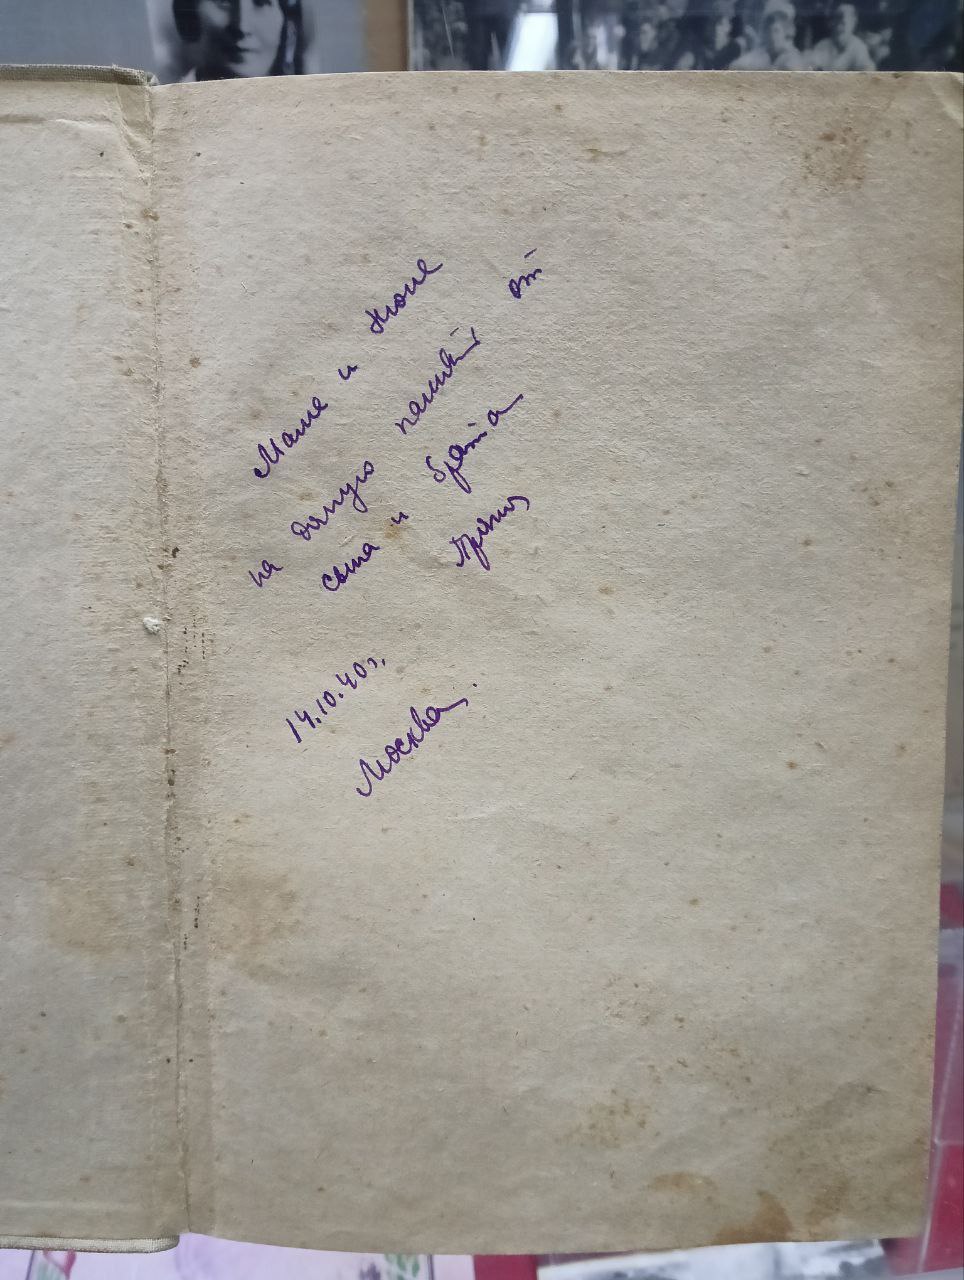 Маме и Нюле
на долгую память от
сына и брата
14.10.40 г.
Москва.